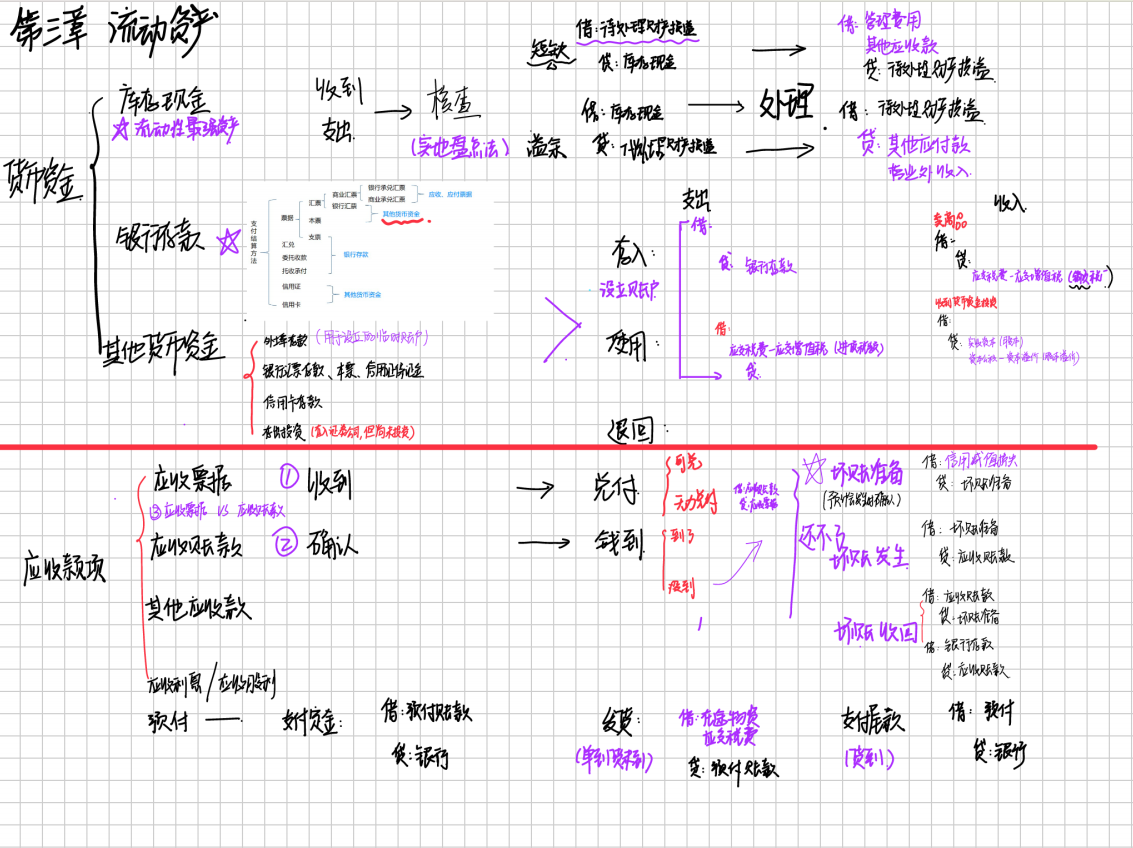 第三章 流动资产
货币资金
库存现金
☆流动性最强资产
收到
支出
→ 检查
(实地盘点法)
短缺
借:待处理财产损溢
贷:库存现金
溢余
借:库存现金
贷:待处理财产损溢
处理
借:管理费用
其他应收款
贷:待处理财产损溢
借:待处理财产损溢
贷:其他应付款
营业外收入
银行存款 ☆
支付结算方法
票据
汇票
商业汇票
银行承兑汇票
商业承兑汇票
应收、应付票据
银行汇票
本票
其他货币资金
支票
汇兑
委托收款
托收承付
银行存款
信用证
信用卡
其他货币资金
其他货币资金
外埠存款 (用于设立的临时账户)
银行汇票存款、本票、信用证保证金
信用卡存款
存出投资 (存入证券公司,但尚未投资)
存入:
设立账户
使用:
退回:
支出
借:
贷:银行存款
借:
应交税费—应交增值税(进项税额)
贷:
收入
卖商品
借:
贷:
应交税费—应交增值税(销项税)
收到货币资金投资
借:
贷:实收资本(股本)
资本公积—资本溢价(股本溢价)
应收款项
应收票据 ① 收到 → 兑付
③应收票据 VS 应收账款
应收账款 ② 确认 → 钱到
其他应收款
应收利息/应收股利
可兑
无力兑付
借:应收账款
贷:应收票据
到了
没到
☆坏账准备
(预计信用减值确认)
借:信用减值损失
贷:坏账准备
还不了
坏账发生
借:坏账准备
贷:应收账款
坏账收回
借:应收账款
贷:坏账准备
借:银行存款
贷:应收账款
预付 — 支付资金:
借:预付账款
贷:银行
发货:
(单到货未到)
借:在途物资
应交税费
贷:预付账款
支付尾款
(货到)
借:预付
贷:银行